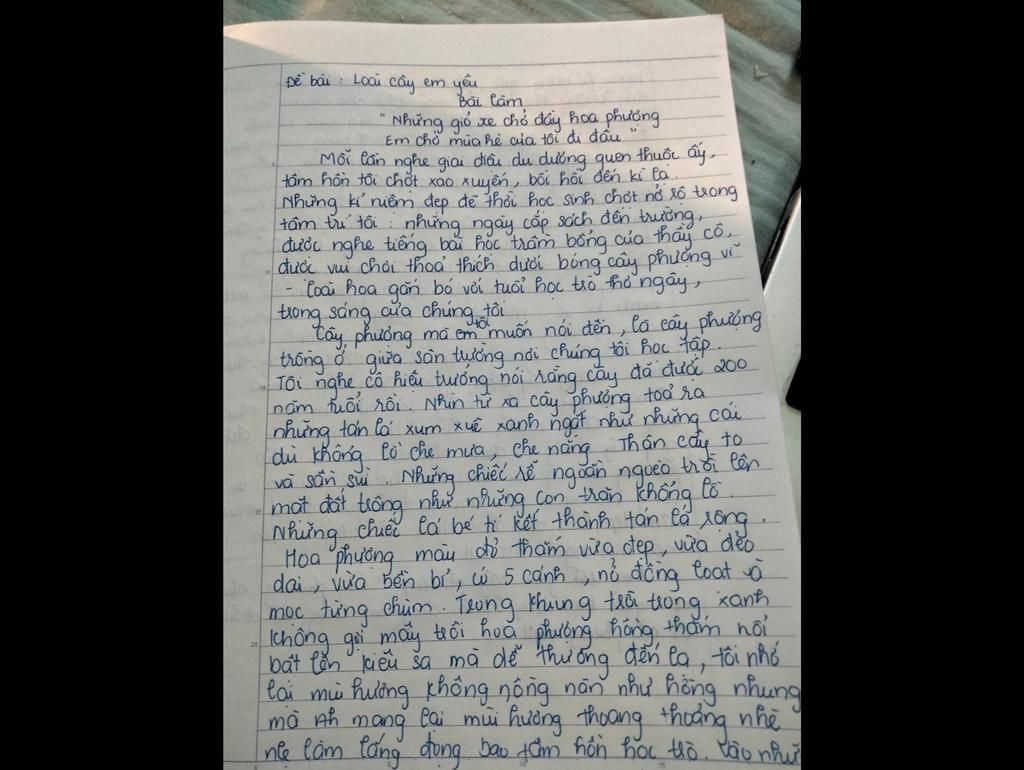 Đề bài : Loài cây em yêu
Bài làm
" Những giỏ xe chở đầy hoa phượng
Em chở mùa hè của tôi đi đâu "
Mỗi lần nghe giai điệu du dương quen thuộc ấy,
tâm hồn tôi chợt xao xuyến, bồi hồi đến kì lạ.
Những kỉ niệm đẹp đẽ thời học sinh chợt nở rộ trong
tâm trí tôi : những ngày cắp sách đến trường,
được nghe tiếng bài học trầm bổng của thầy cô,
được vui chơi thoả thích dưới bóng cây phượng vĩ
- loài hoa gắn bó với tuổi học trò thơ ngây,
trong sáng của chúng tôi
Cây phượng mà em tôi muốn nói đến, là cây phượng
trồng ở giữa sân trường nơi chúng tôi học tập.
Tôi nghe cô hiệu trưởng nói rằng cây đã được 200
năm tuổi rồi. Nhìn từ xa cây phượng toả ra
những tán lá xum xuê xanh ngát như những cái
dù khổng lồ che mưa, che nắng. Thân cây to
và sần sùi. Những chiếc rễ ngoằn ngoèo trồi lên
mặt đất trông như những con trăn khổng lồ.
Những chiếc lá bé tí kết thành tán lá rộng.
Hoa phượng màu đỏ thắm vừa đẹp, vừa dẻo
dai, vừa bền bỉ, có 5 cánh, nở đồng loạt và
mọc từng chùm. Trong khung trời trong xanh
không gợi mây trôi hoa phượng hồng thắm nổi
bật lên kiêu sa mà dễ thương đến lạ, tôi nhớ
lại mùi hương không nồng nàn như hồng nhung
mà nh mang lại mùi hương thoang thoảng nhè
nhẹ làm lắng đọng bao tâm hồn học trò. như